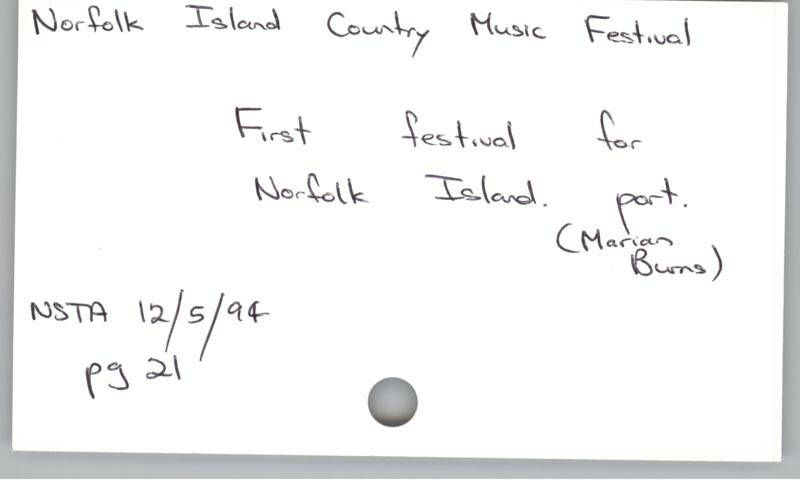 Norfolk Island Country Music Festival
First festival for
Norfolk Island. port.
(Marian
Burns)
NSTA 12/5/94
pg 21